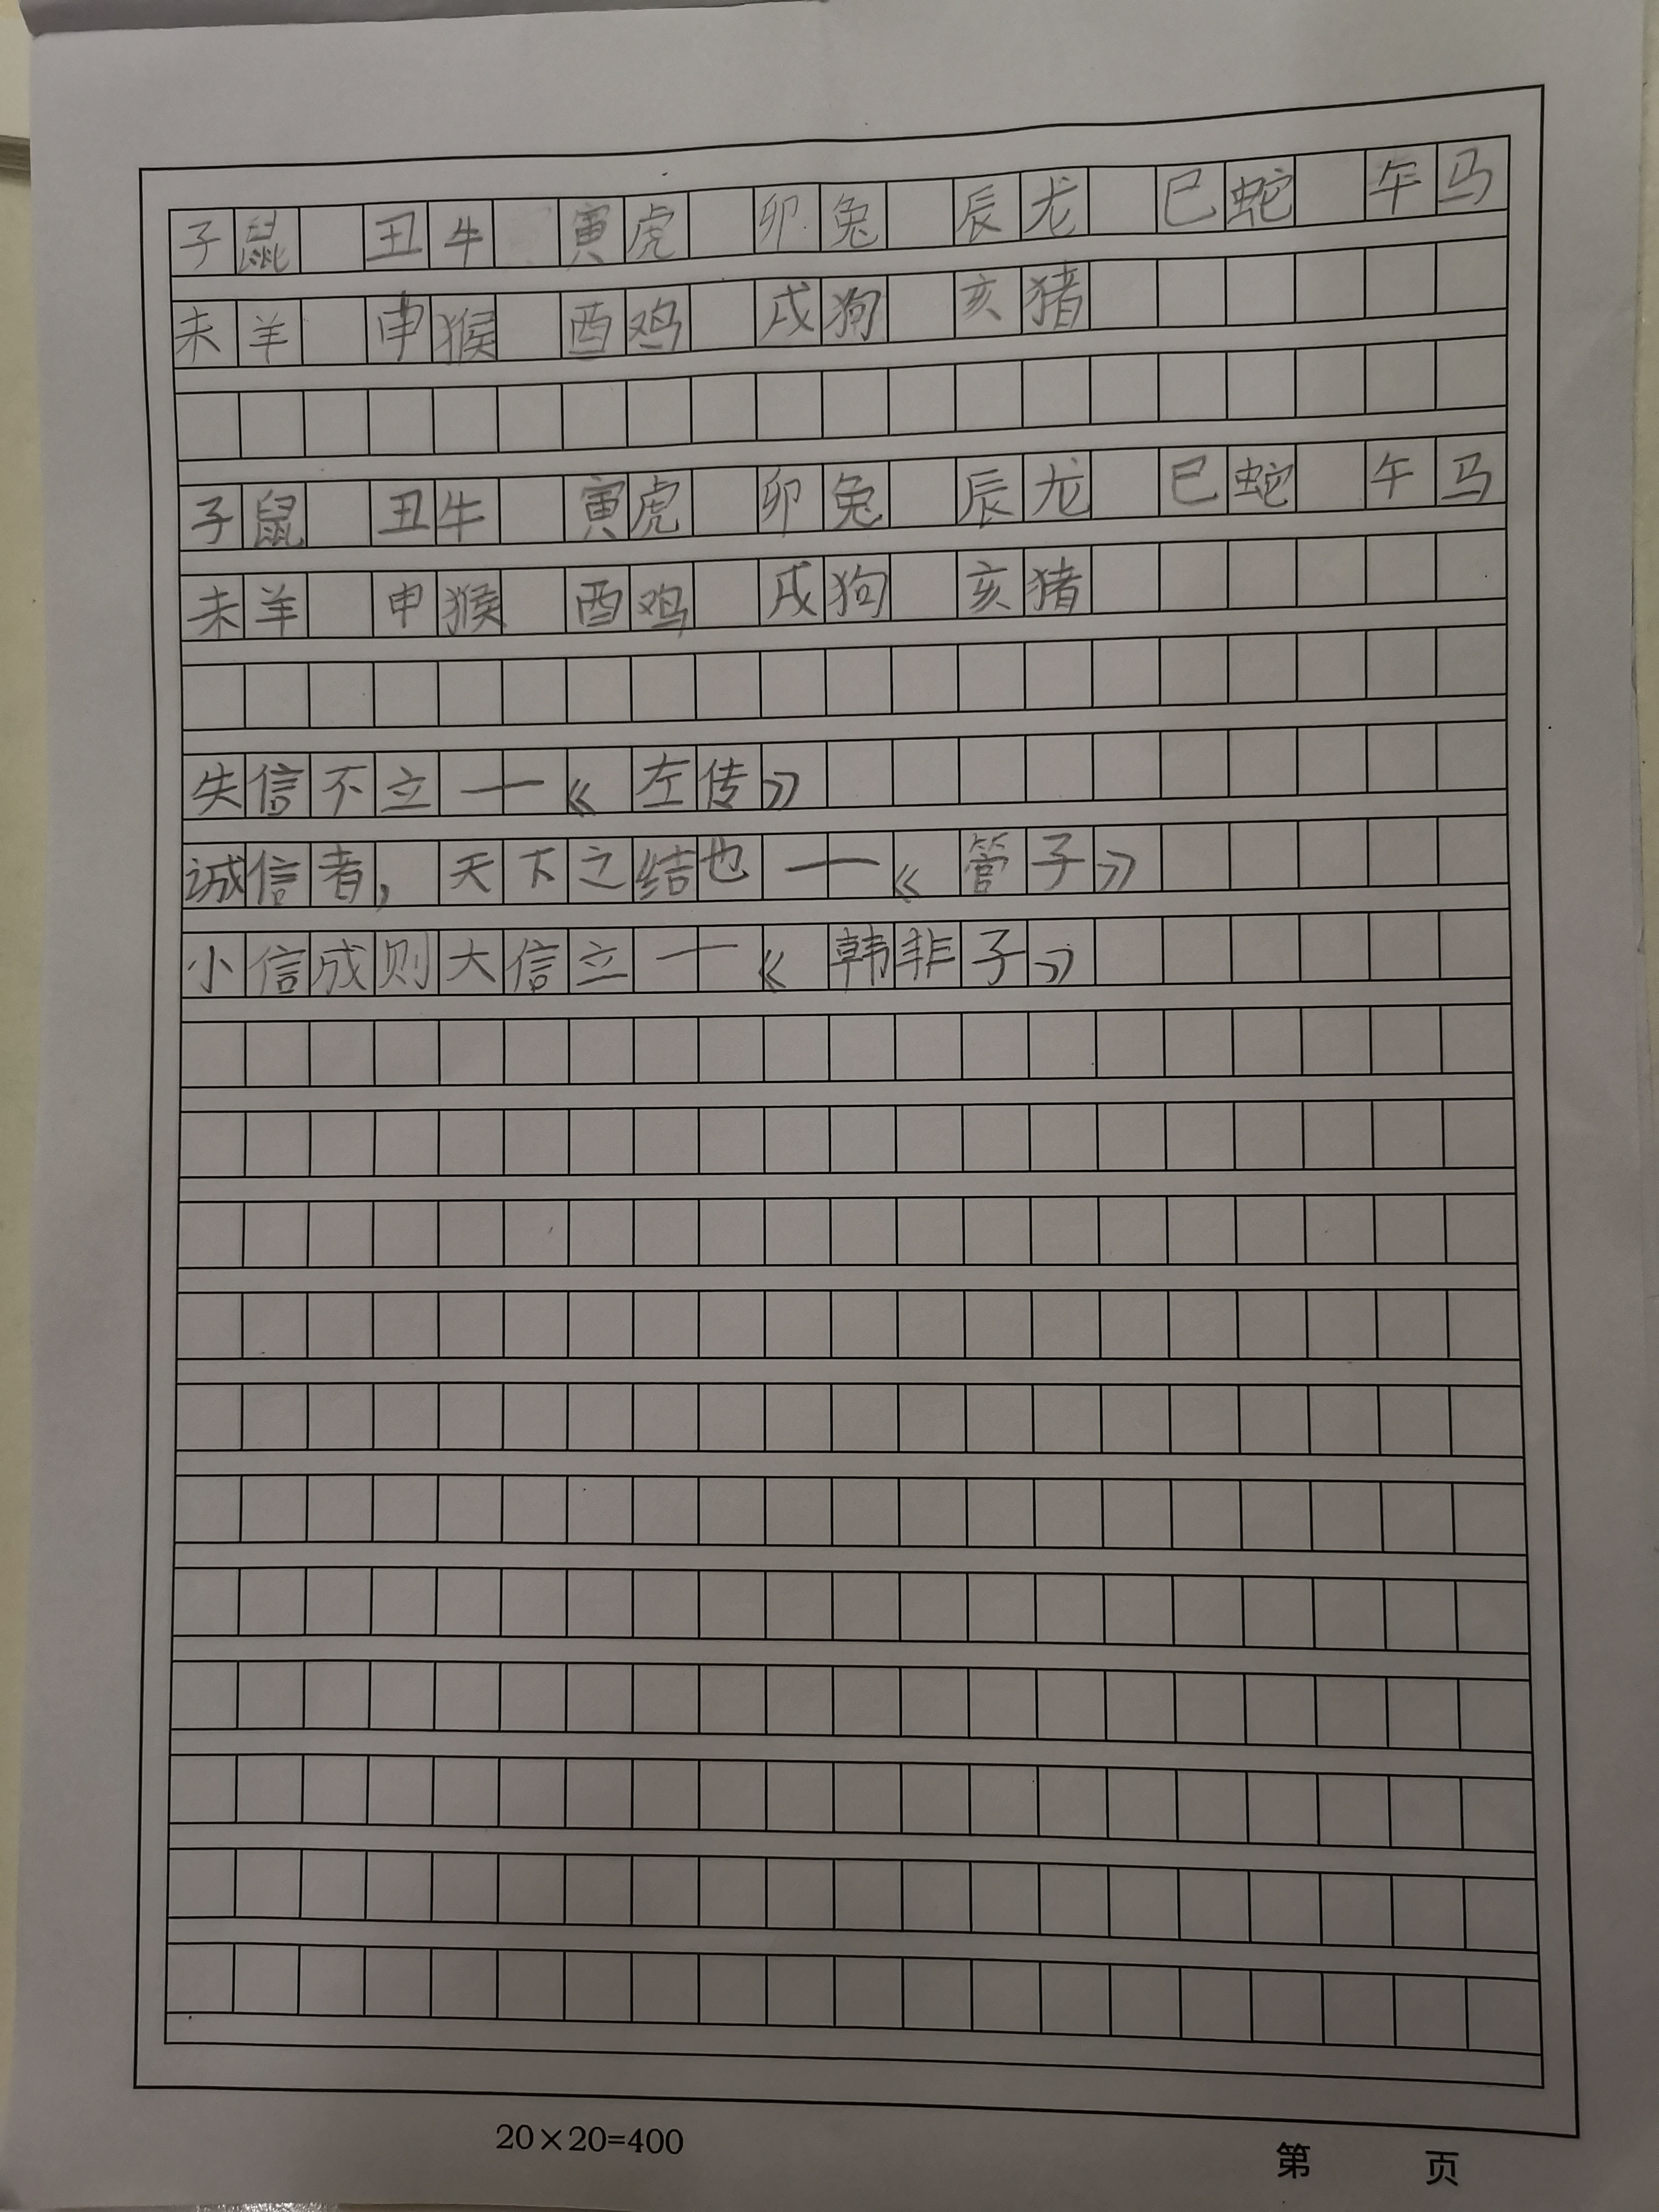 子鼠 丑牛 寅虎 卯兔 辰龙 巳蛇 午马
未羊 申猴 酉鸡 戌狗 亥猪
子鼠 丑牛 寅虎 卯兔 辰龙 巳蛇 午马
未羊 申猴 酉鸡 戌狗 亥猪
失信不立——《左传》
诚信者，天下之结也——《管子》
小信成则大信立——《韩非子》
20×20=400
第 页